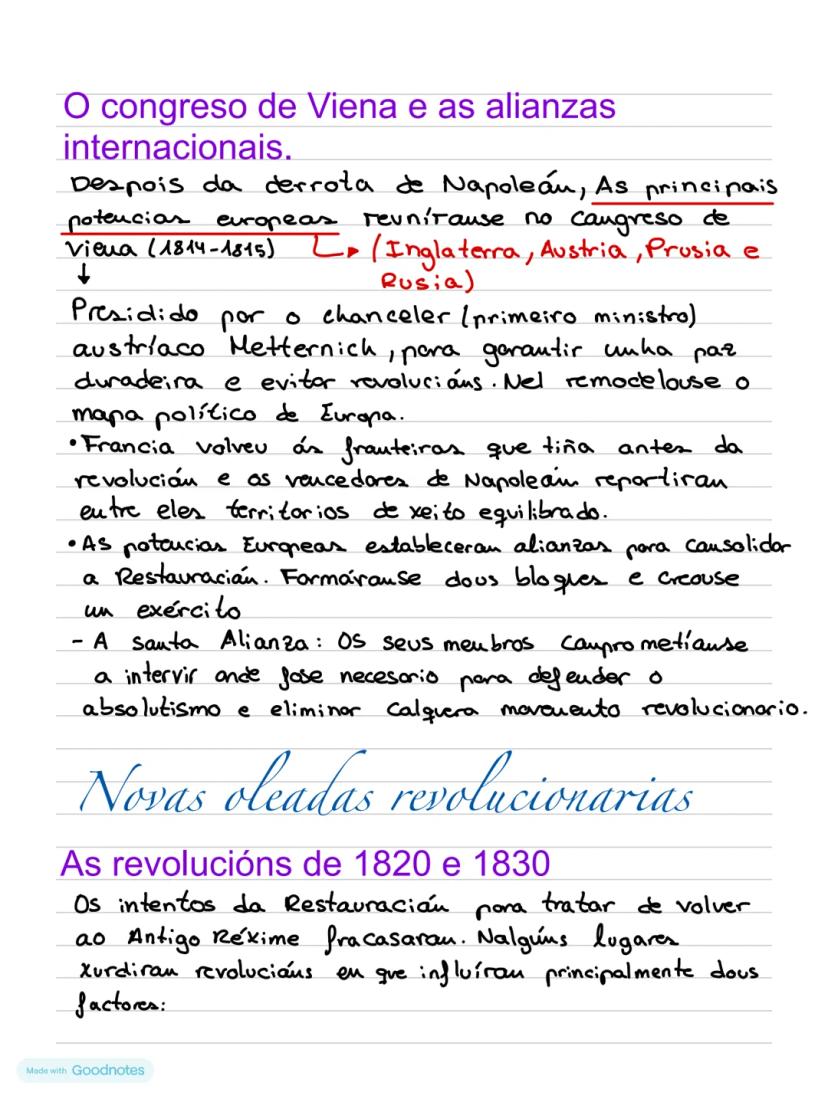 O congreso de Viena e as alianzas
internacionais.
Despois da derrota de Napoleón, As principais
potencias europeas reuníronse no congreso de
Viena (1814-1815) (Inglaterra, Austria, Prusia e
Rusia)
Presidido por o chanceler (primeiro ministro)
austríaco Metternich, para garantir unha paz
duradeira e evitar revolucións. Nel remodelouse o
mapa político de Europa.
• Francia volveu ás fronteiras que tiña antes da
revolución e os vencedores de Napoleón repartiron
entre eles territorios de xeito equilibrado.
• As potencias Europeas estableceron alianzas para consolidar
a Restauración. Formáronse dous bloques e creouse
un exército
- A santa Alianza: Os seus membros comprometíanse
a intervir onde fose necesario para defender o
absolutismo e eliminar calquera movemento revolucionario.
Novas oleadas revolucionarias
As revolucións de 1820 e 1830
Os intentos da Restauración para tratar de volver
ao Antigo Réxime fracasaron. Nalgúns lugares
xurdiron revolucións en que influíron principalmente dous
factores:
Made with Goodnotes